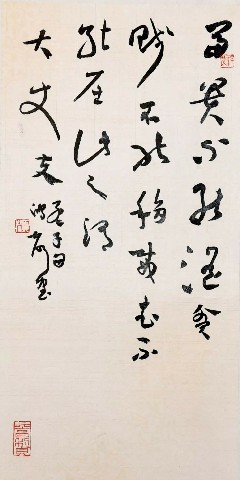 富貴不能淫貧
賤不能移威武不
能屈此之謂
大丈夫
孟子曰